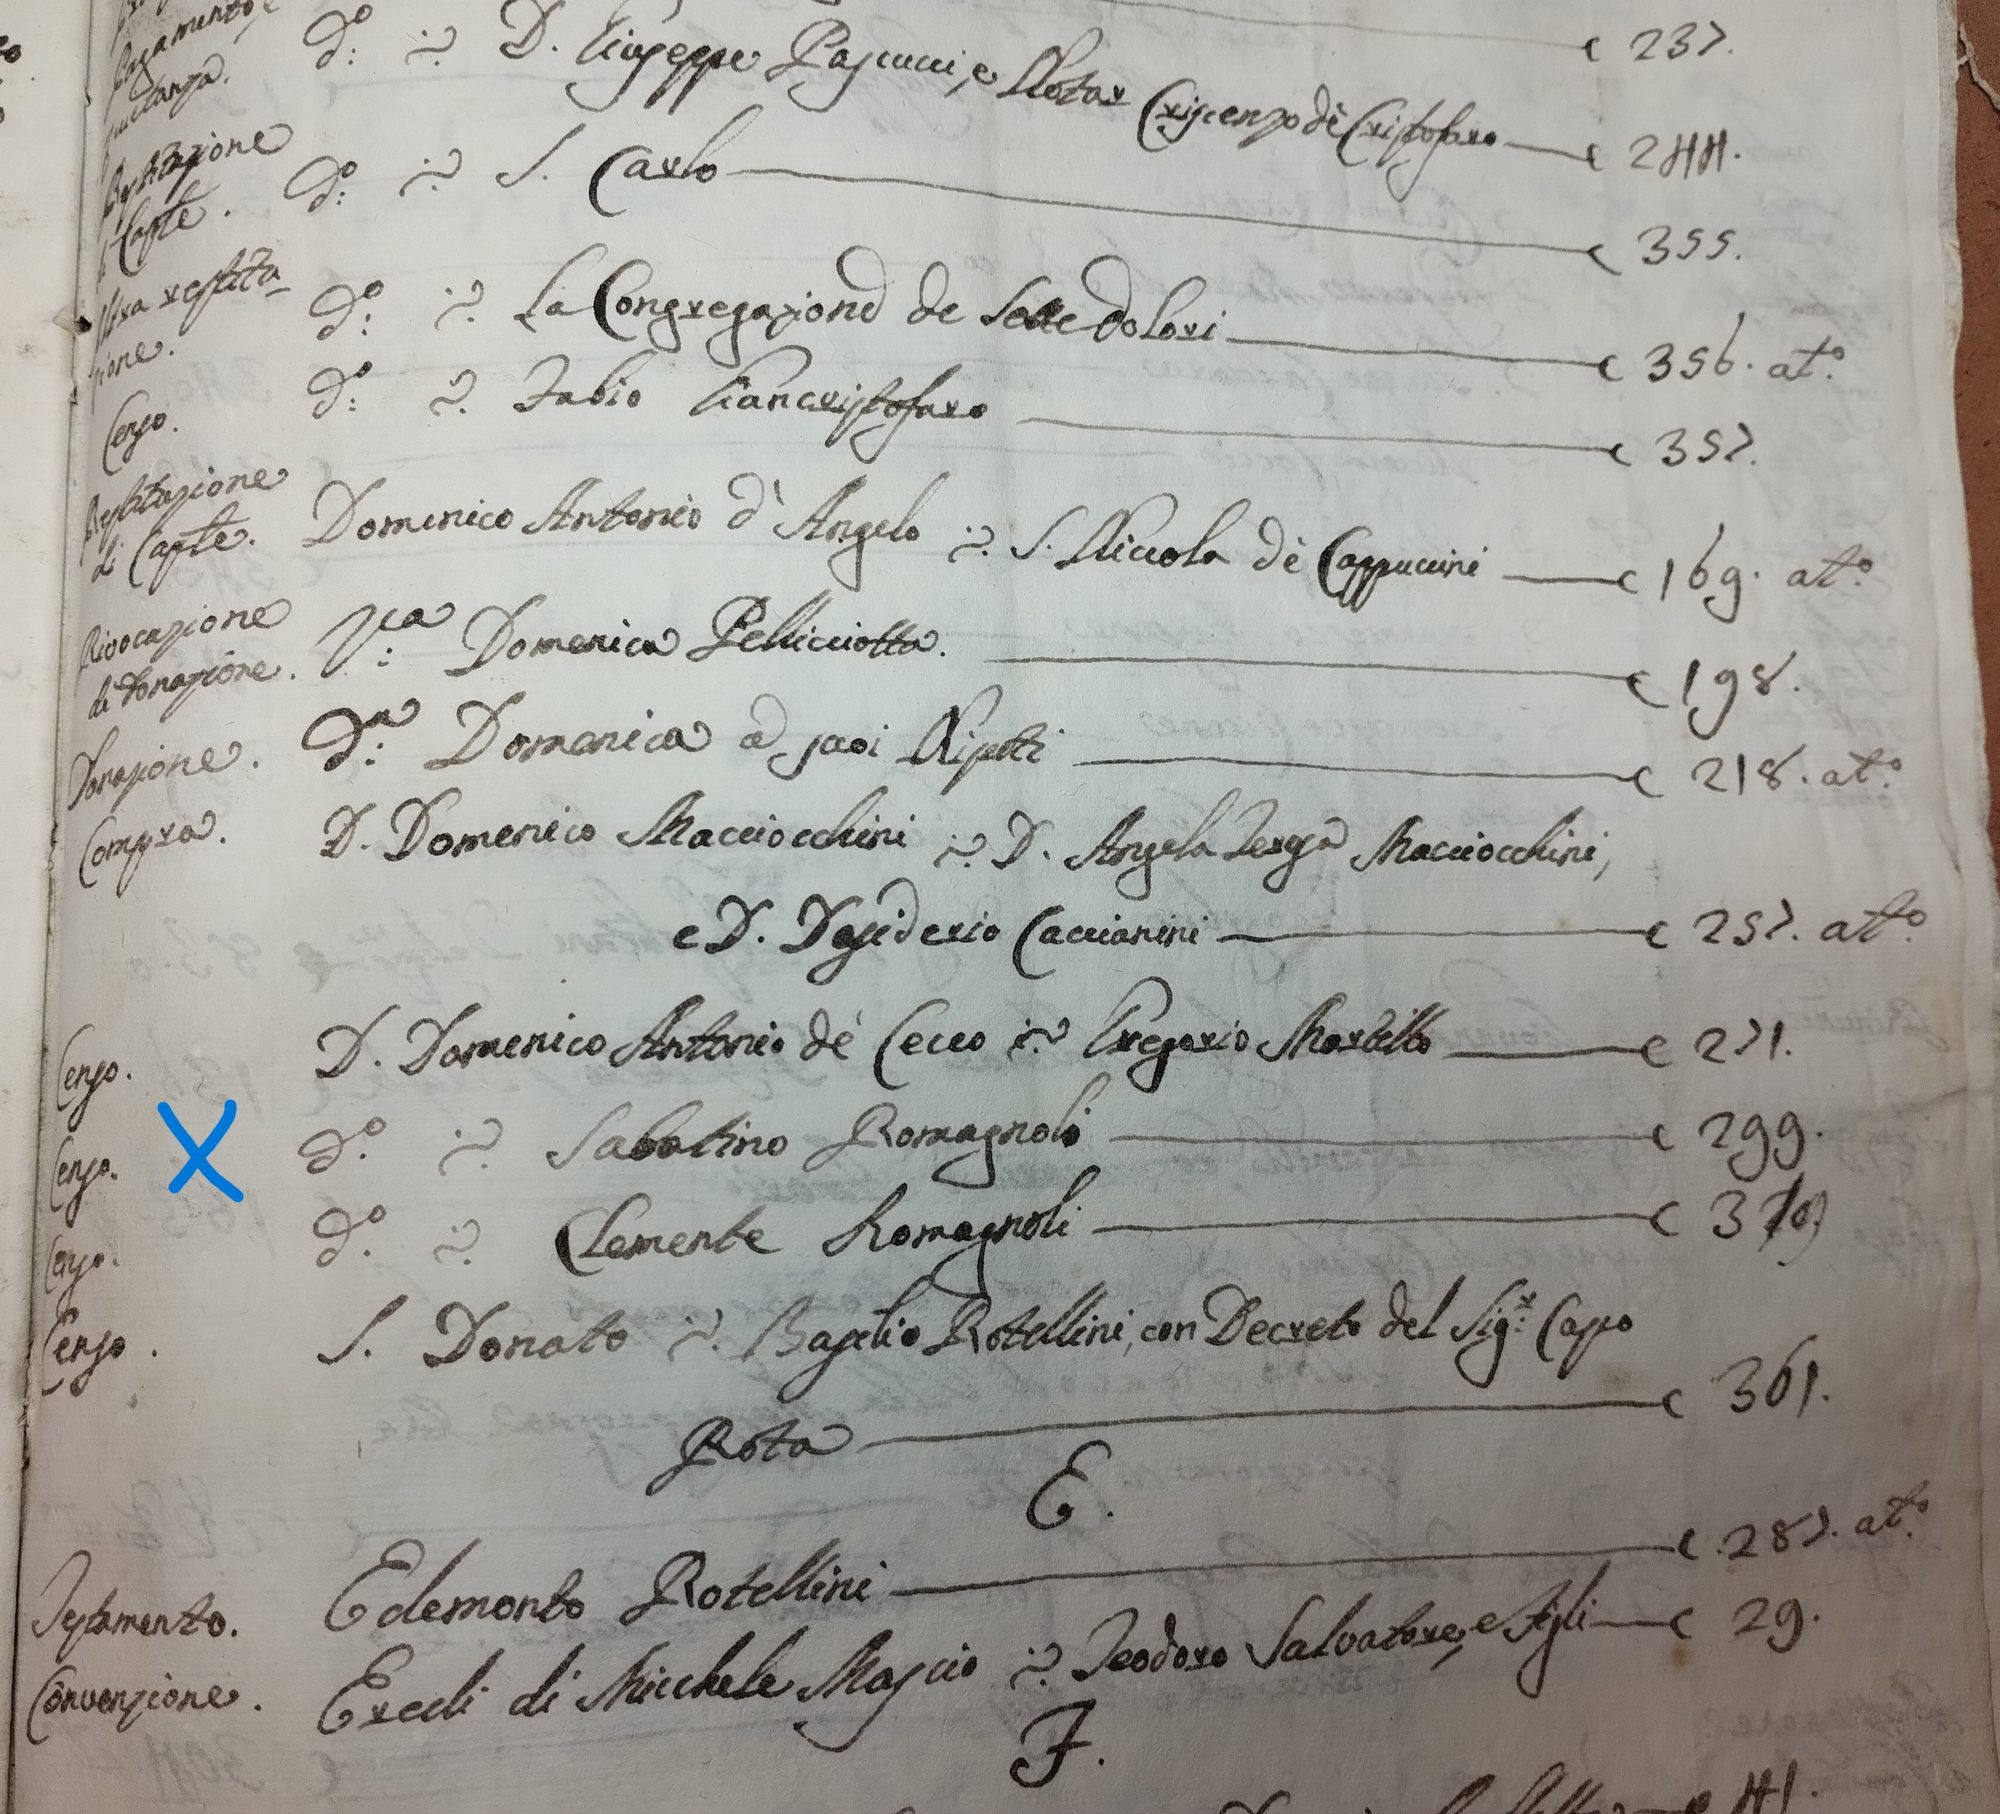 c 237.
Pagamento, e D.º : ~ : D. Giuseppe Pascucci, e Notar Criscenzo de Cristofaro — c 244.
quietanza.
Restitazione d.º : ~ : S. Carlo — c 355.
di Capte.
Altra restita- d.º : ~ : La Congregazione de Sette dolori — c 356. at.º
zione.
Censo. d.º : ~ : Fabio Giancristofaro — c 357.
Restitazione Domenico Antonio d'Angelo : ~ : S. Niccola dè Cappuccini — c 169. at.º
di Capte.
Rivocazione Domenica Pellicciotta. — c 198.
di donazione.
Donazione. d.ª Domenica a suoi Nipoti — c 218. at.º
Compra. D. Domenico Macciocchini : ~ : D. Angela Teresa Macciocchini,
e D. Desiderio Caccianini — c 257. at.º
Censo. D. Domenico Antonio de Cecco : ~ : Gregorio Martello — c 271.
Censo. X d.º : ~ : Sabatino Romagnoli — c 299.
Censo. d.º : ~ : Clemente Romagnoli — c
Censo. S. Donato : ~ : Basilio Rotellini, con Decreto del Sig.r Capo
Rota — c 361.
E.
Testamento. Edemondo Rotellini — c 287. at.º
Convenzione. Eredi di Michele Mascio : ~ : Teodoro Salvatore, e Figli — c 29.
F.